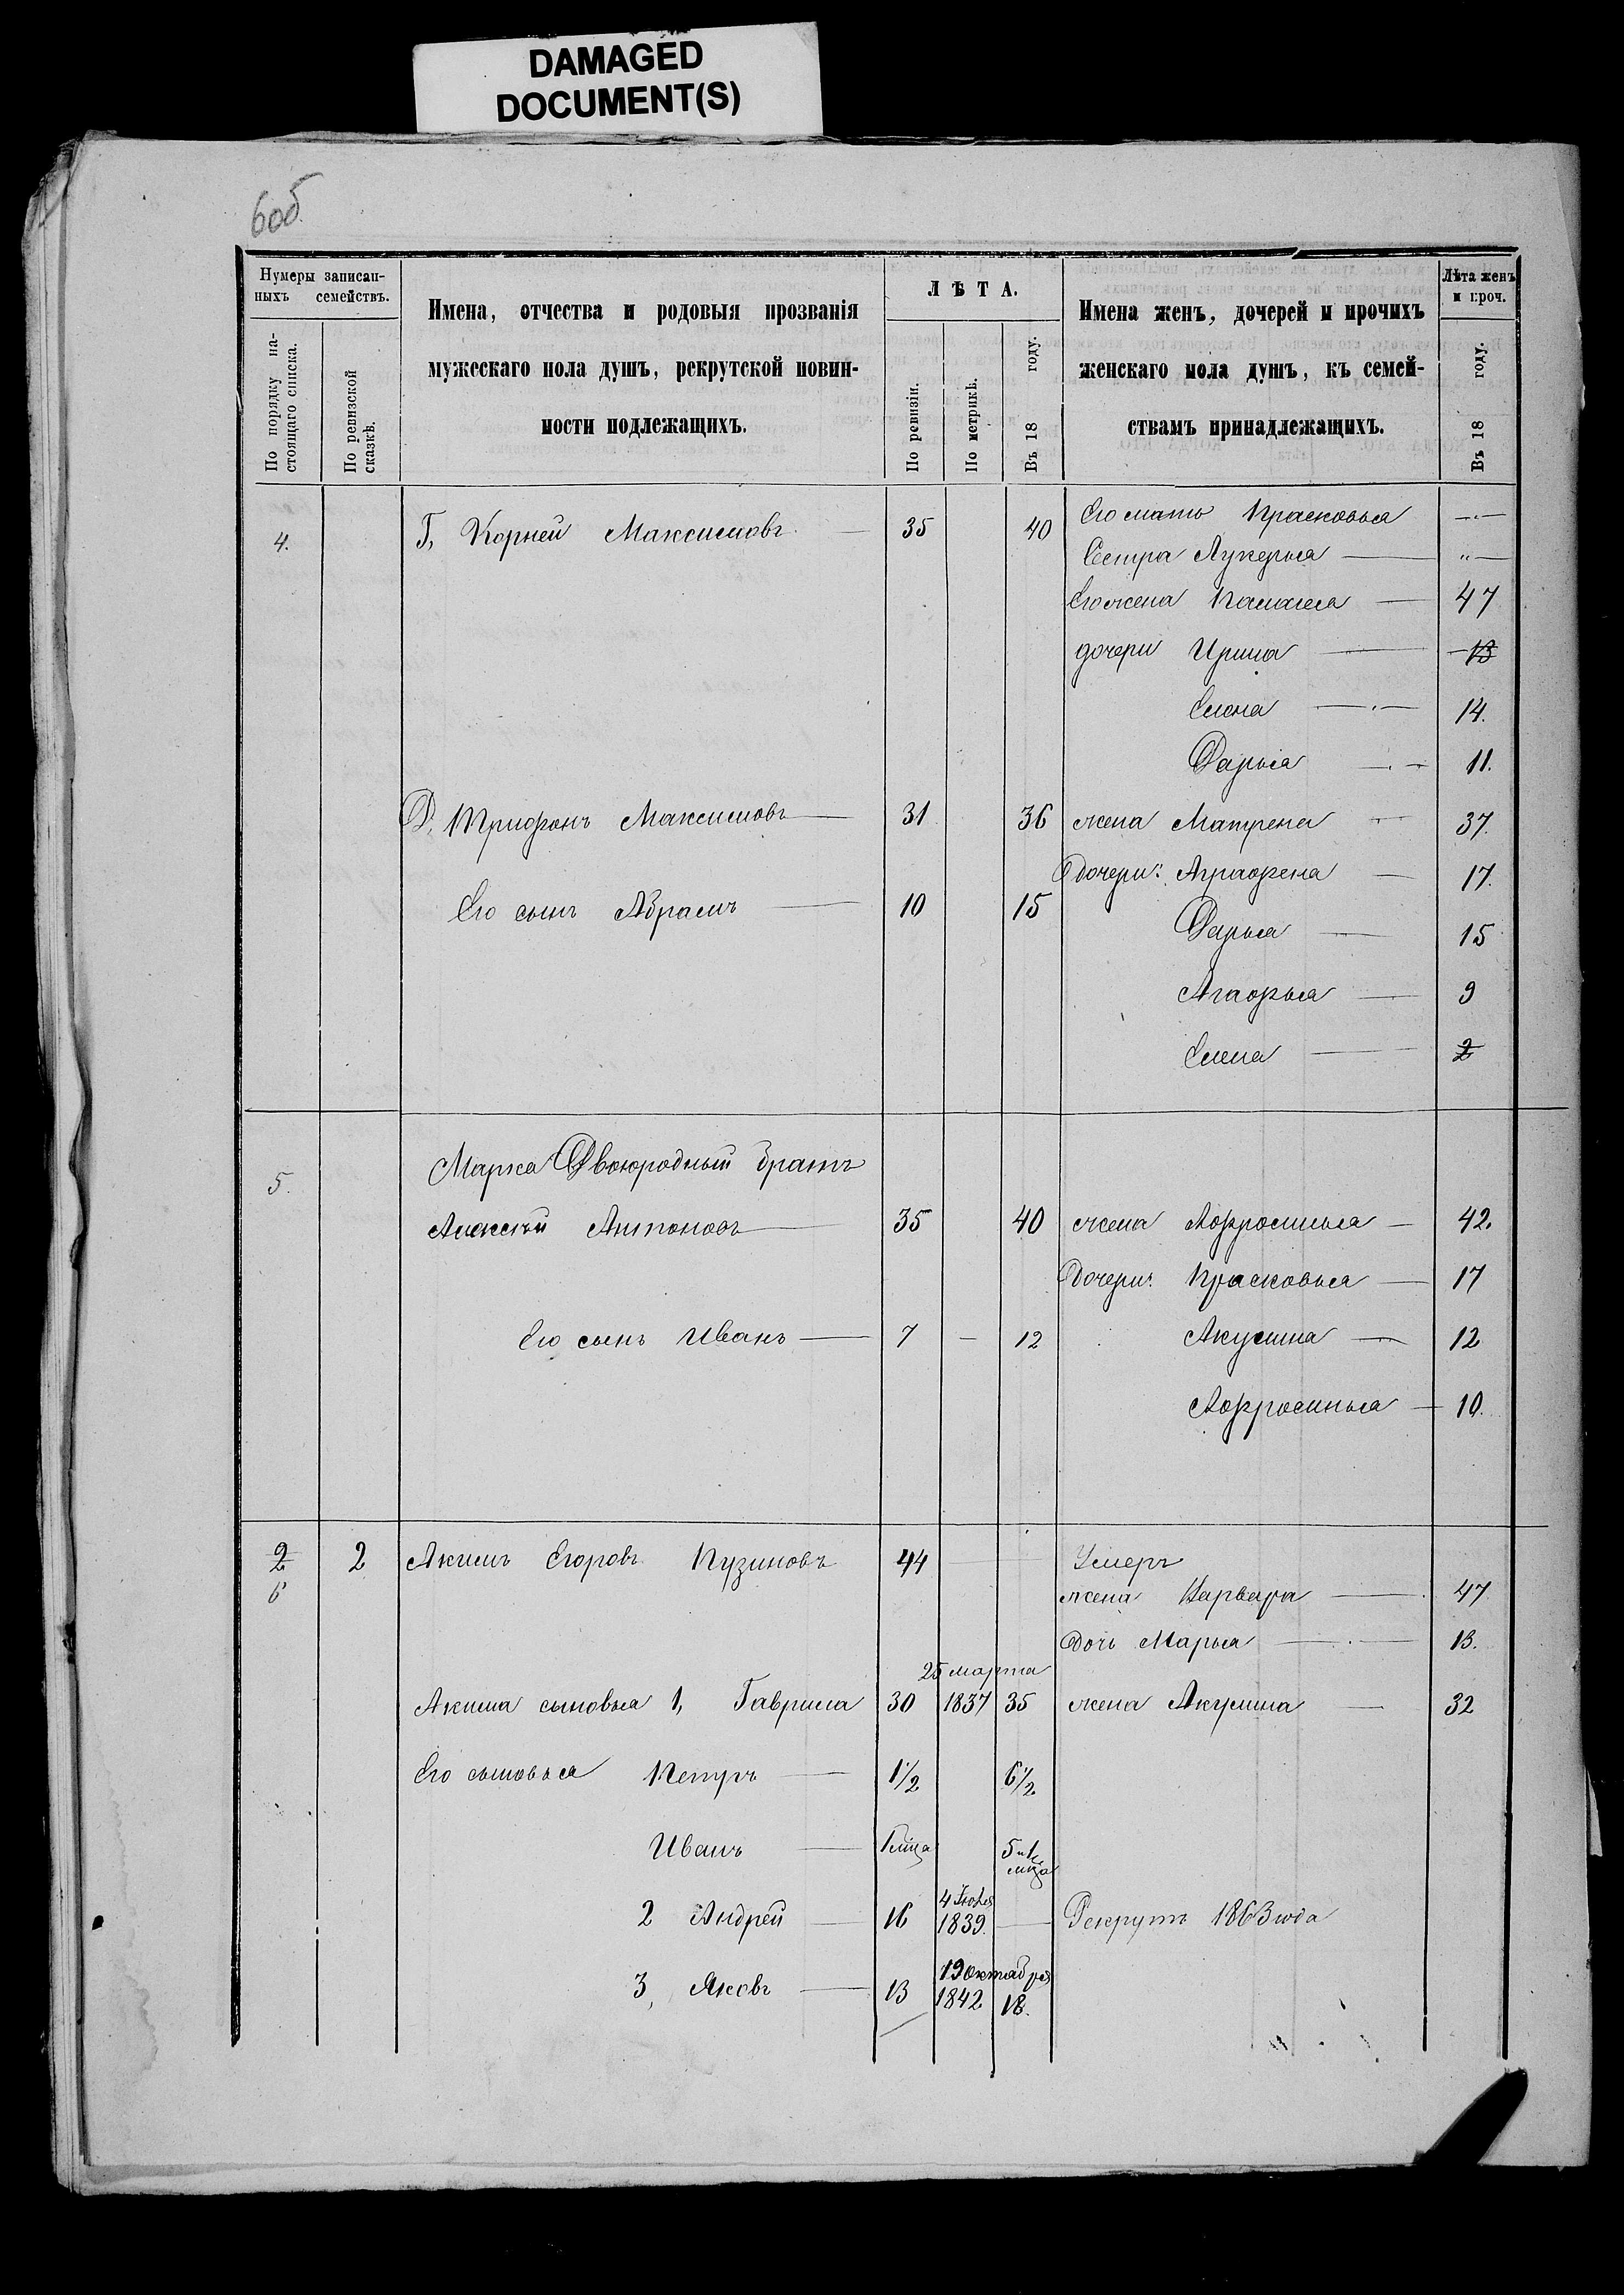 DAMAGED
DOCUMENT(S)
6об
Нумеры записан-
ныхъ семействъ.
По порядку на-
стоящаго списка.
По ревизской
сказкѣ.
Имена, отчества и родовыя прозванія
мужескаго пола душъ, рекрутской повин-
ности подлежащихъ.
ЛѢТА.
По ревизіи.
По метрикѣ.
Въ 18 году.
Имена женъ, дочерей и прочихъ
женскаго пола душъ, къ семей-
ствамъ принадлежащихъ.
Лѣта женъ
и проч.
Въ 18 году.
4. Г, Корней Максимовъ — 35 40 Его мать Прасковья —
Сестра Лукерья — „ —
Его жена Палагея — 47
дочери Ирина — 13
Елена — 14.
Дарья — 11.
Д, Трифонъ Максимовъ — 31 36 жена Матрена — 37.
Дочери: Аграфена — 17.
Его сынъ Абрамъ — 10 15
Дарья — 15
Агафья — 9
Елена — 2
5. Марка Двоюродный братъ
Алексѣй Антоновъ — 35 40 жена Афросинья — 42.
Дочери: Прасковья — 17
Его сынъ Иванъ — 7 — 12 Акулина — 12
Афросинья — 10.
2 2 Акимъ Егоровъ Пузиновъ 44 — Умеръ
6 жена Варвара — 47
Дочь Марья — 13.
25 марта
Акима сыновья 1, Гаврила 30 1837 35 жена Акулина — 32
Его сыновья Петръ — 1½ 6½
Иванъ — 1 м̃ца 5 и 1
м̃ца
4 Іюля
2 Андрей — 16 1839. — Рекрутъ 1863 года
19 октября
3, Яковъ — 13 1842 18.